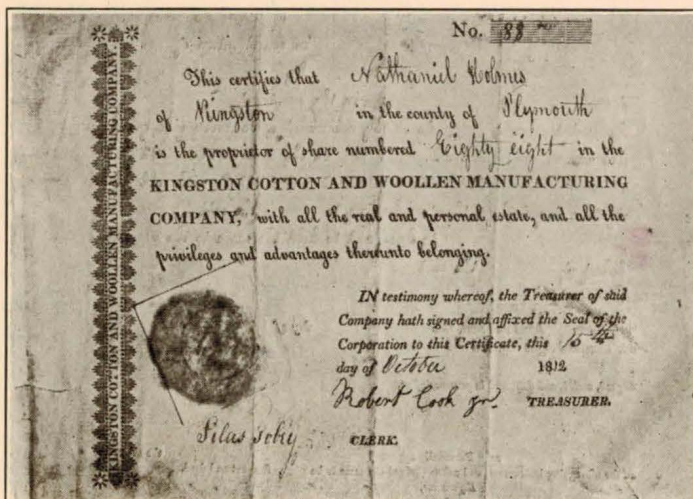 KINGSTON COTTON AND WOOLLEN MANUFACTURING COMPANY.
No. 88
This certifies that Nathaniel Holmes
of Kingston in the county of Plymouth
is the proprietor of share numbered Eighty eight in the
KINGSTON COTTON AND WOOLLEN MANUFACTURING
COMPANY, with all the real and personal estate, and all the
privileges and advantages thereunto belonging.
IN testimony whereof, the Treasurer of said
Company hath signed and affixed the Seal of the
Corporation to this Certificate, this 15th
day of October 1812
Robert Cook jr. TREASURER.
CLERK.